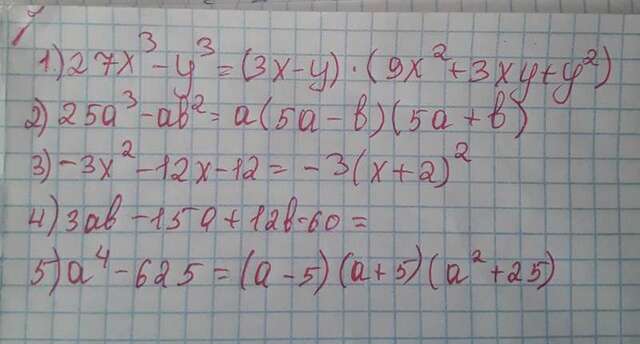 1.) 27x³ - y³ = (3x - y) · (9x² + 3xy + y²)
2) 25a³ - ab² = a(5a - b)(5a + b)
3) -3x² - 12x - 12 = -3(x + 2)²
4) 3ab - 15a + 12b - 60 =
5) a⁴ - 625 = (a - 5)(a + 5)(a² + 25)